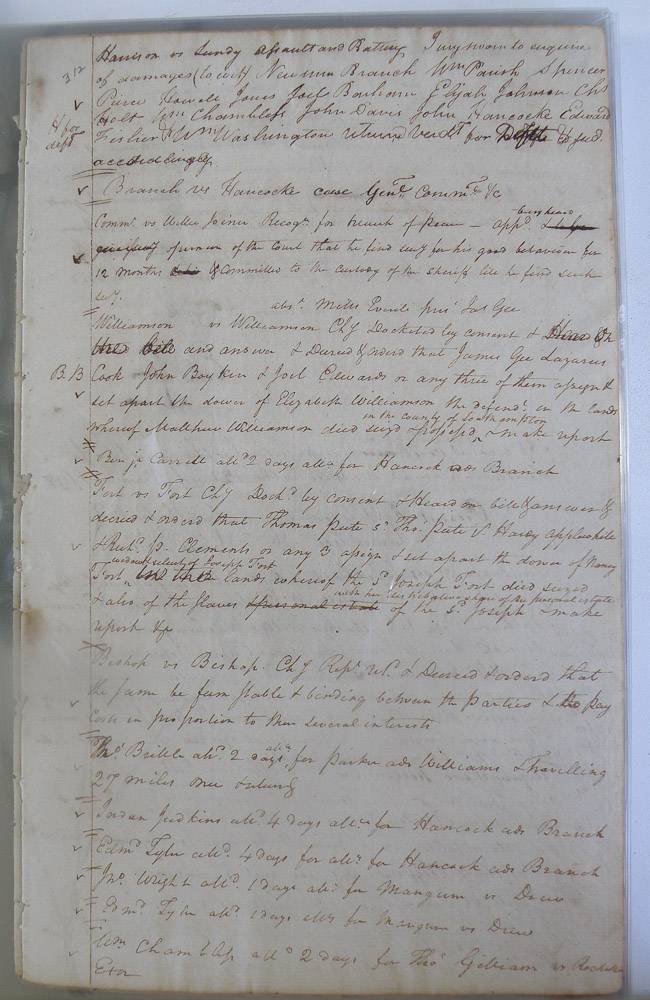 312
Harrison vs Sundy Assault and Battery Jury sworn to enquire
of damages (to wit) Newsum Branch Wm Parish Spencer
Pierce Howell Jones Joel Bonham Elijah Johnson Chs
Holt Wm Chambliss John Davis John Hancocke Edward
Jf for
deft
Fisher & Wm Washington returnd Verdt for Deft & jud.
accordingly
Branch vs Hancocke case Genl. Commce &c
Commth vs Willie Joiner Recogce for breach of peace — appd. &
being heard
opinion of the court that he find secy for his good behaviour for
12 months & committed to the custody of the sheriff till he find such
secy.
abst. Mills Everitt prest Jas Gee
Williamson vs Williamson Chy Docketed by consent & Heard on
the bill and answer & Decreed & ordered that James Gee Lazarus
B.B
Cook John Boykin & Joel Edwards or any three of them assign &
set apart the dower of Elizabeth Williamson the defendt. in the lands
in the county of Southampton
whereof Matthew Williamson died seizd & possessd & make report
Benja Carrell alld 2 days attce for Hancock ads Branch
Fort vs Fort Chy Dockd by consent & Heard on bill & answer &
decreed & orderd that Thomas Pete sr Thos Pete jr Henry Applewhite
& Richd. P. Clements or any 3 assign & set apart the dower of Nancy
widow & relict of Joseph Fort
Fort, in the lands whereof the sd Joseph Fort died seized
with her distributive share of the personal estate
& also of the slaves & personal estate of the sd. Joseph & make
report &c
Bishop vs Bishop. Chy Rept retd. & Decreed & orderd that
the same be firm stable & binding between the parties & to pay
Costs in proportion to their several interests
Thos Brittle alld. 2 days attce for Parker ads Williams & Travelling
27 miles over & returng
Jordan Judkins alld 4 days attce for Hancock ads Branch
Edmd Tyler alld. 4 days for attce for Hancock ads Branch
Jno. Wright alld. 1 days attce for Mangum vs Drew
Edmd. Tyler alld. 1 days attce for Mangum vs Drew
Wm Chambliss alld 2 days for Thos Gilliam vs
Exor